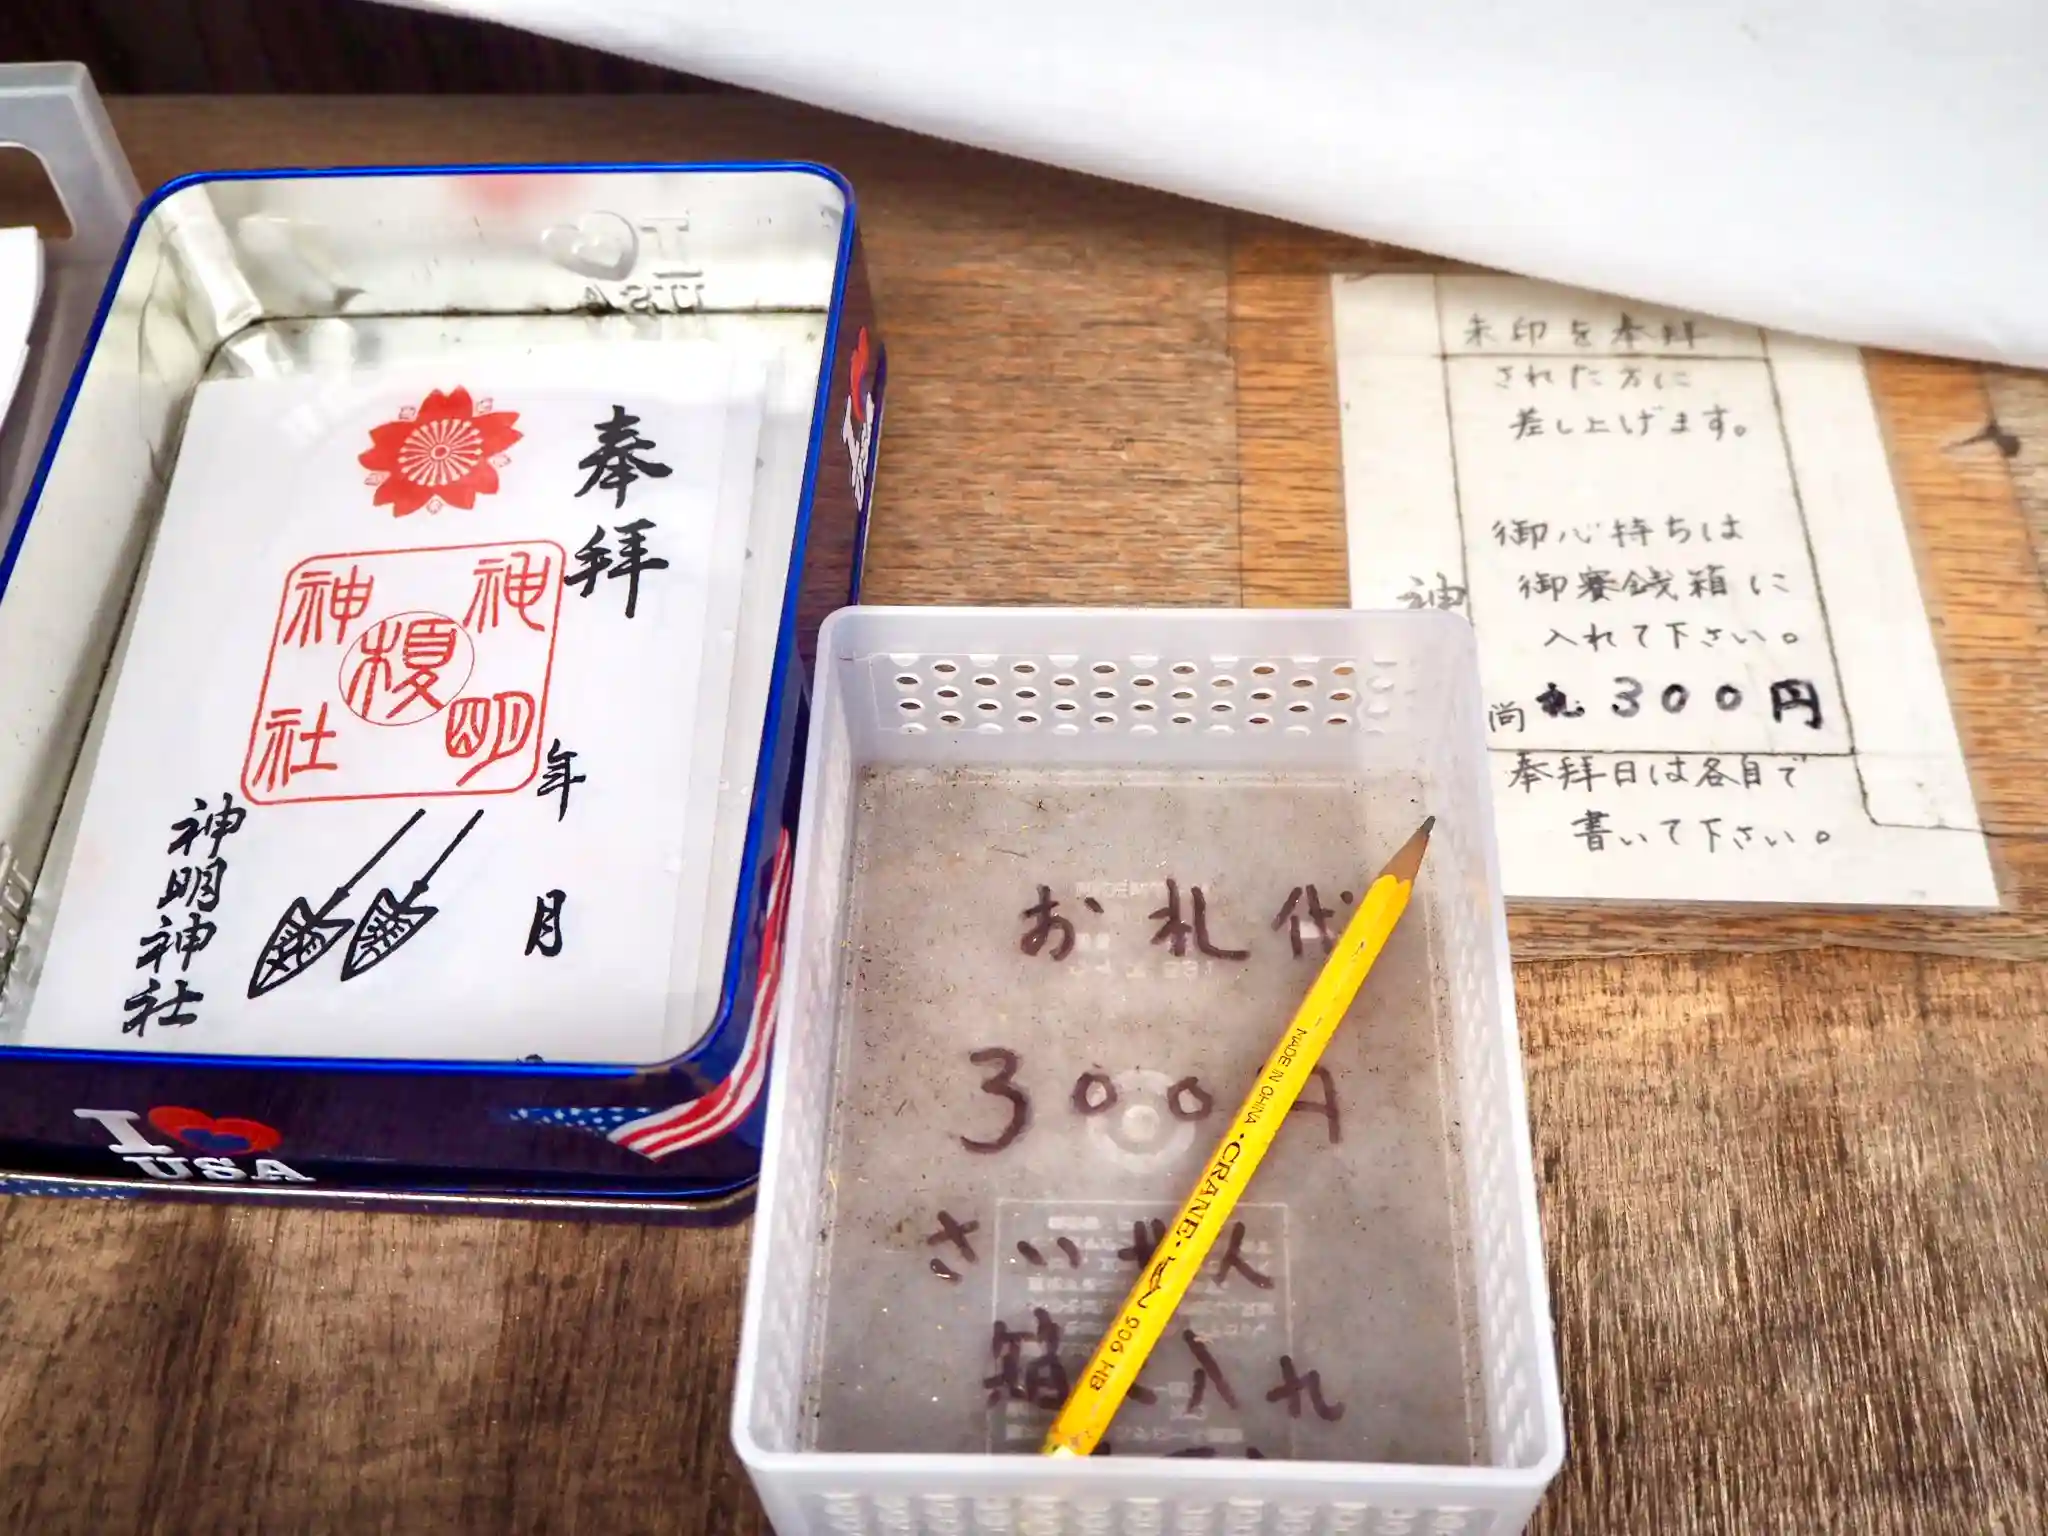 奉拝
神 神
榎
社 明
年
月
神明神社
I
USA
朱印を奉拝
された方に
差し上げます。
御心持ちは
御賽銭箱に
入れて下さい。
尚 札 300円
奉拝日は各自で
書いて下さい。
神
お札代
300円
さいせん
箱に入れ
MADE IN CHINA ・CRANE・ 9606 HB